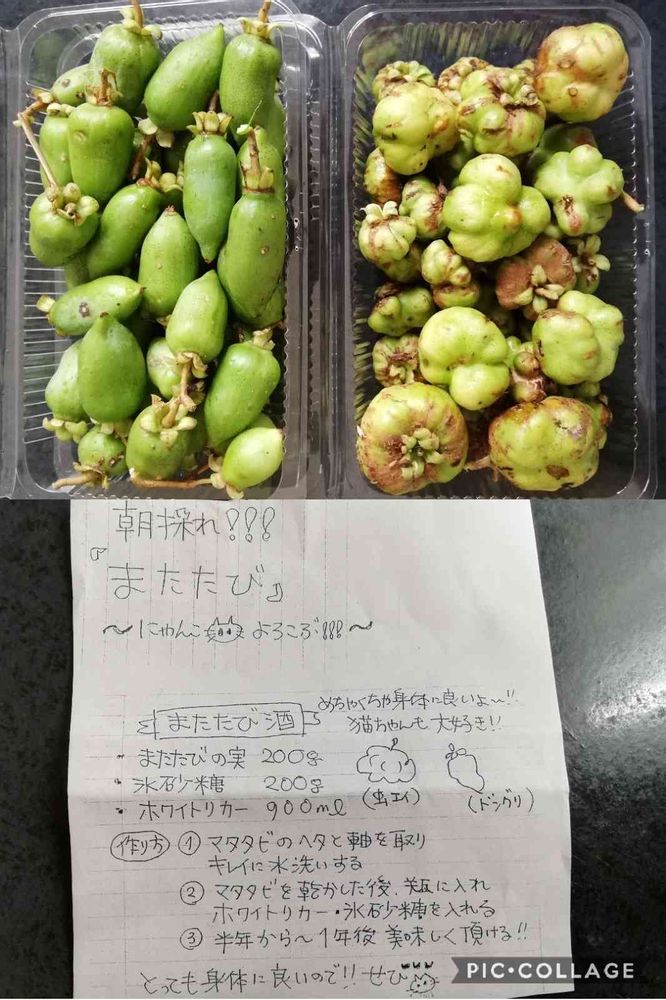 朝採れ!!!
『またたび』
〜にゃんこ よろこぶ!!!〜
またたび酒
めちゃくちゃ身体に良いよ〜!!
猫ちゃんも大好き!!
・またたびの実 200g
・氷砂糖 200g
・ホワイトリカー 900ml
(虫エイ)
(ドングリ)
作り方 ① マタタビのヘタと軸を取り
キレイに水洗いする
② マタタビを乾かした後、瓶に入れ
ホワイトリカー・氷砂糖を入れる
③ 半年から〜1年後 美味しく頂ける!!
とっても身体に良いので!! ぜひ
PIC•COLLAGE